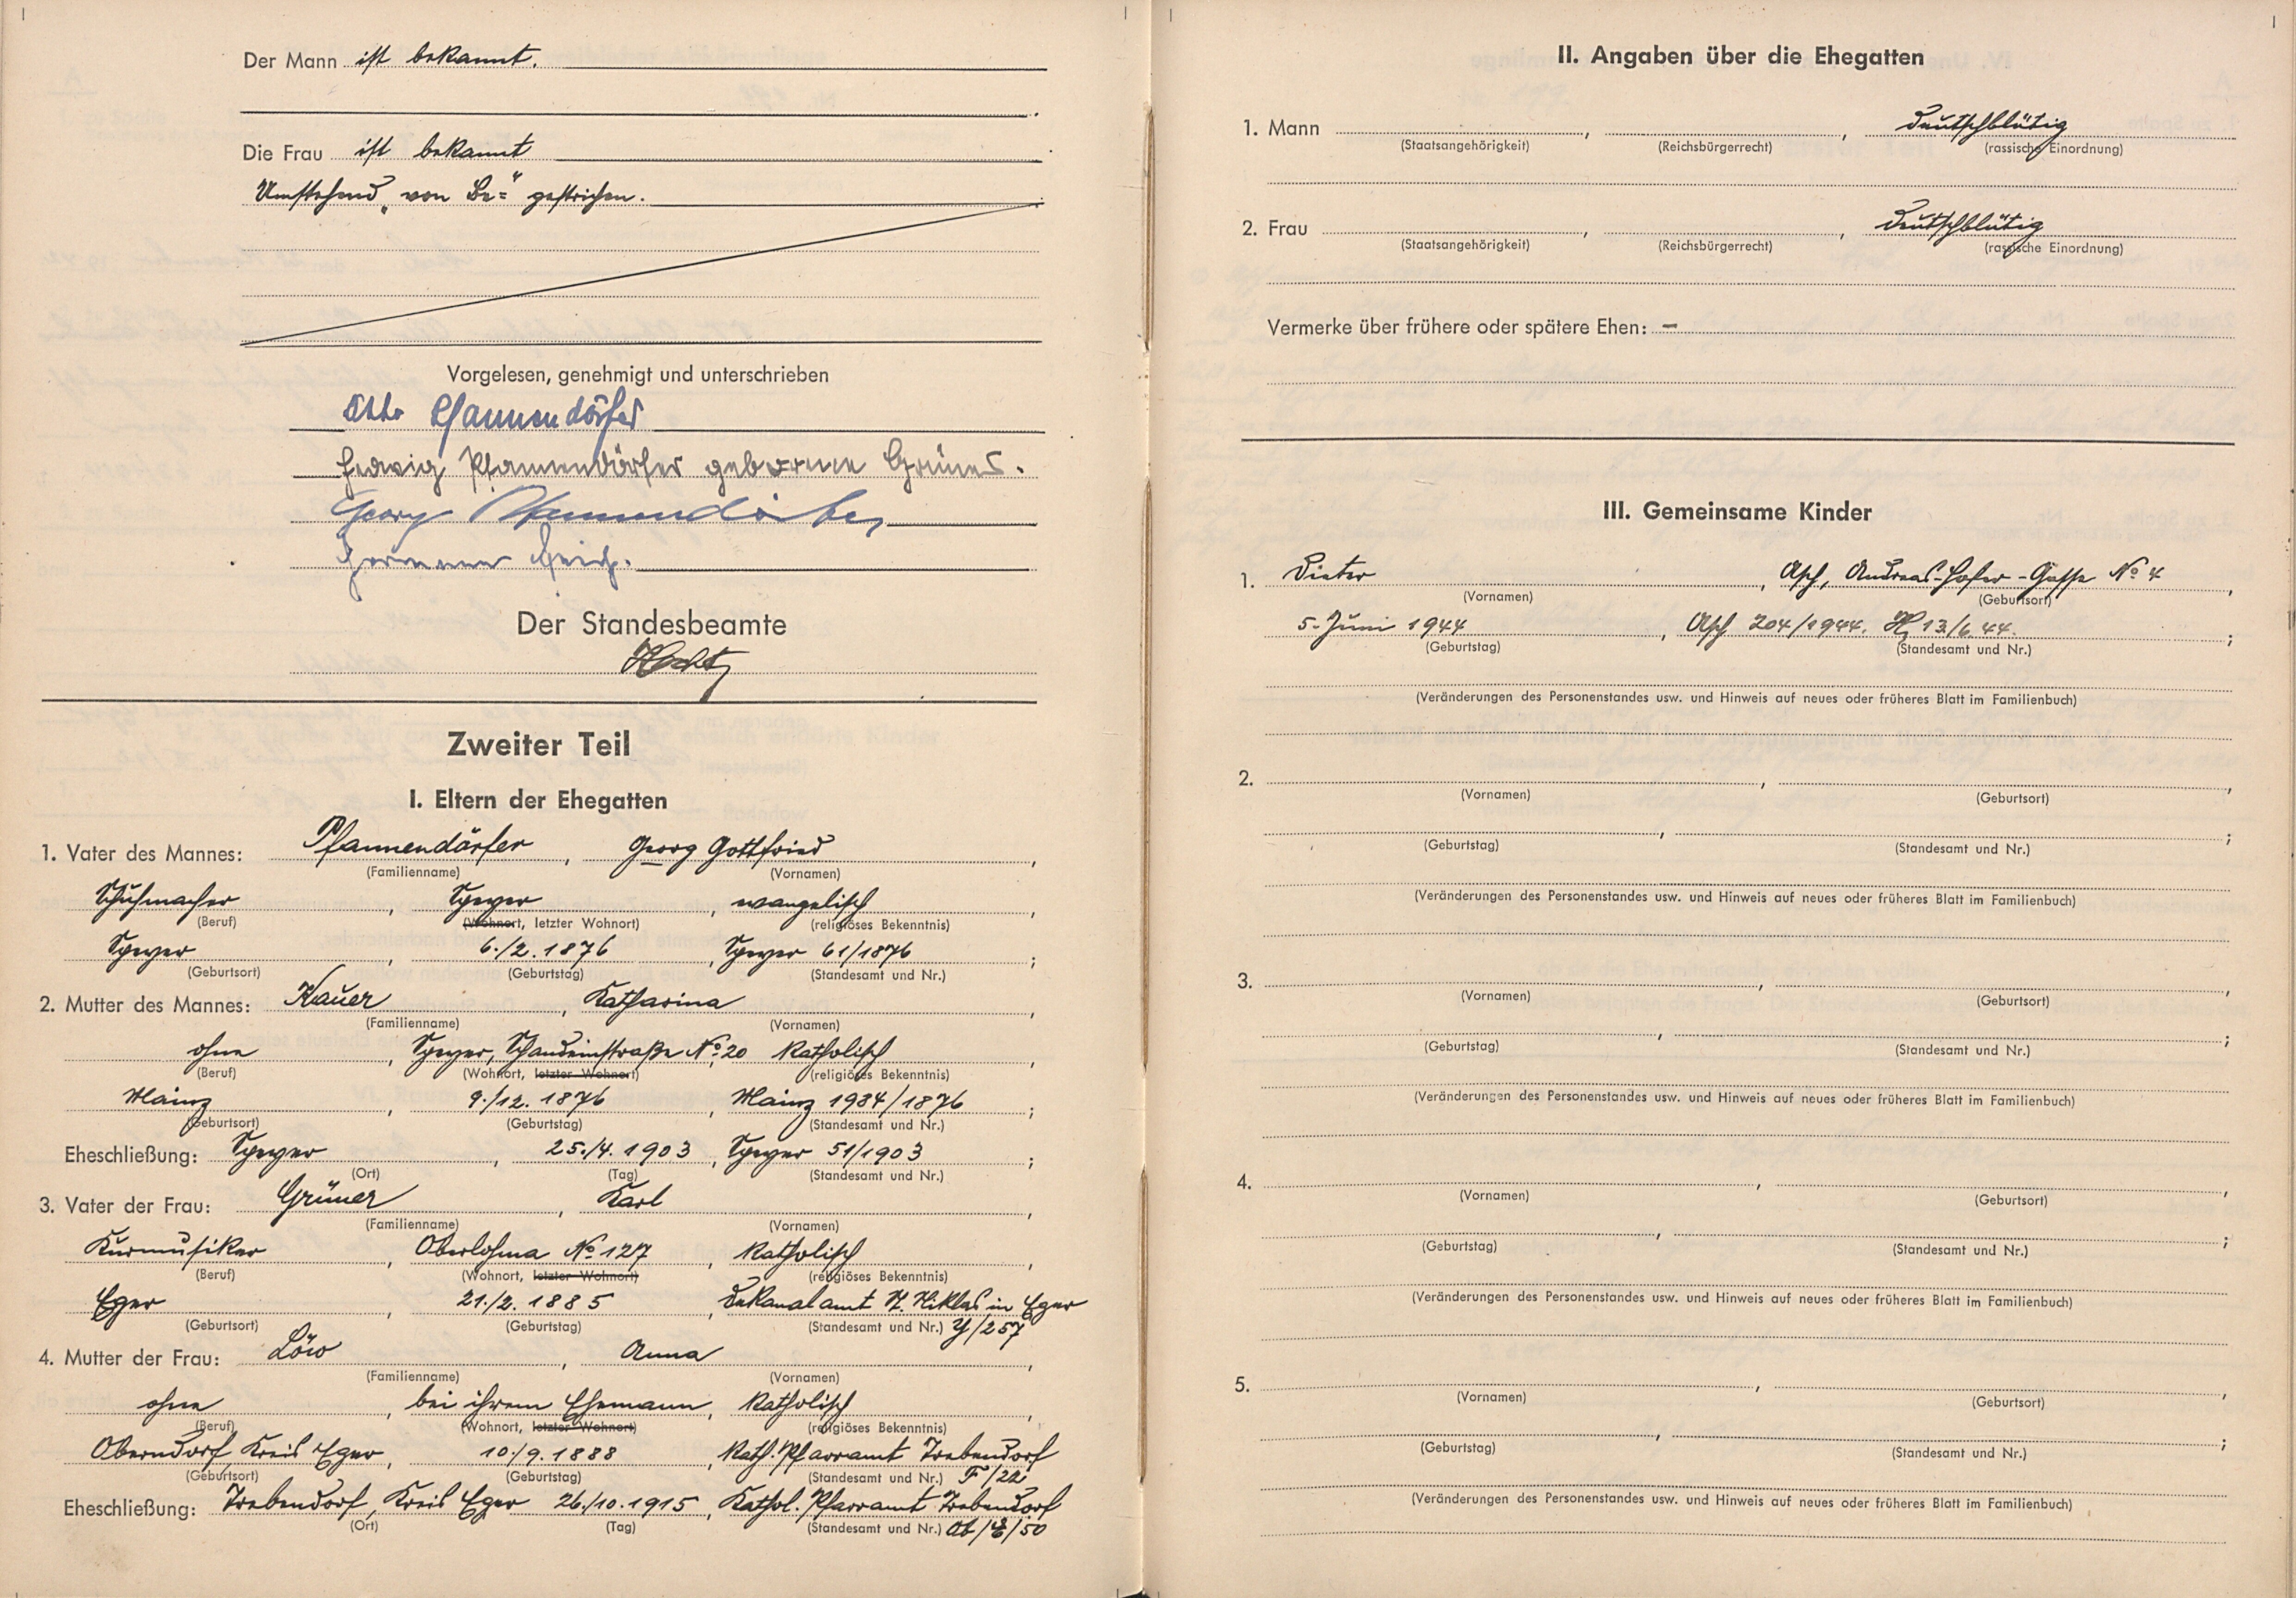 Der Mann ist bekannt.
Die Frau ist bekannt
Umstehend „von Be=" gestrichen.
Vorgelesen, genehmigt und unterschrieben
Otto Pfannendörfer
Hedwig Pfannendörfer geborene Grüner.
Georg Pfannendörfer
Hermann
Der Standesbeamte
Zweiter Teil
I. Eltern der Ehegatten
1. Vater des Mannes: Pfannendörfer, Georg Gottfried,
(Familienname) (Vornamen)
Schuhmacher, Speyer, evangelisch,
(Beruf) (Wohnort, letzter Wohnort) (religiöses Bekenntnis)
Speyer, 6./2. 1876, Speyer 61/1876;
(Geburtsort) (Geburtstag) (Standesamt und Nr.)
2. Mutter des Mannes: Kauer, Katharina,
(Familienname) (Vornamen)
ohne, Speyer, Schandeinstraße No. 20 katholisch,
(Beruf) (Wohnort, letzter Wohnort) (religiöses Bekenntnis)
Mainz, 9./12. 1876, Mainz 1984/1876;
(Geburtsort) (Geburtstag) (Standesamt und Nr.)
Eheschließung: Speyer, 25./4. 1903, Speyer 51/1903;
(Ort) (Tag) (Standesamt und Nr.)
3. Vater der Frau: Grüner, Karl,
(Familienname) (Vornamen)
Kurmusiker, Oberlohma No. 127, katholisch,
(Beruf) (Wohnort, letzter Wohnort) (religiöses Bekenntnis)
Eger, 21./2. 1885, Dekanalamt St. Niklas in Eger
(Geburtsort) (Geburtstag) (Standesamt und Nr.) Y/257
4. Mutter der Frau: Löw, Anna,
(Familienname) (Vornamen)
ohne, bei ihrem Ehemann, katholisch,
(Beruf) (Wohnort, letzter Wohnort) (religiöses Bekenntnis)
Oberndorf, Kreis Eger, 10./9. 1888, Kath. Pfarramt Trebendorf
(Geburtsort) (Geburtstag) (Standesamt und Nr.) F/22
Eheschließung: Trebendorf, Kreis Eger 26./10. 1915, Kathol. Pfarramt Trebendorf
(Ort) (Tag) (Standesamt und Nr.)
II. Angaben über die Ehegatten
1. Mann , , deutschblütig
(Staatsangehörigkeit) (Reichsbürgerrecht) (rassische Einordnung)
2. Frau , , deutschblütig
(Staatsangehörigkeit) (Reichsbürgerrecht) (rassische Einordnung)
Vermerke über frühere oder spätere Ehen: –
III. Gemeinsame Kinder
1. Dieter, Asch, Andreas-Hofer-Gasse No. 4,
(Vornamen) (Geburtsort)
5. Juni 1944, Asch 204/1944. 13/6.44.;
(Geburtstag) (Standesamt und Nr.)
(Veränderungen des Personenstandes usw. und Hinweis auf neues oder früheres Blatt im Familienbuch)
2. , ,
(Vornamen) (Geburtsort)
, ;
(Geburtstag) (Standesamt und Nr.)
(Veränderungen des Personenstandes usw. und Hinweis auf neues oder früheres Blatt im Familienbuch)
3. , ,
(Vornamen) (Geburtsort)
, ;
(Geburtstag) (Standesamt und Nr.)
(Veränderungen des Personenstandes usw. und Hinweis auf neues oder früheres Blatt im Familienbuch)
4. , ,
(Vornamen) (Geburtsort)
, ;
(Geburtstag) (Standesamt und Nr.)
(Veränderungen des Personenstandes usw. und Hinweis auf neues oder früheres Blatt im Familienbuch)
5. , ,
(Vornamen) (Geburtsort)
, ;
(Geburtstag) (Standesamt und Nr.)
(Veränderungen des Personenstandes usw. und Hinweis auf neues oder früheres Blatt im Familienbuch)